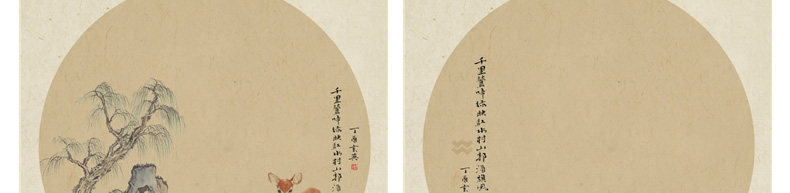 千里莺啼绿映红水村山郭酒
丁酉玄英
千里莺啼绿映红水村山郭酒旗风
丁酉玄